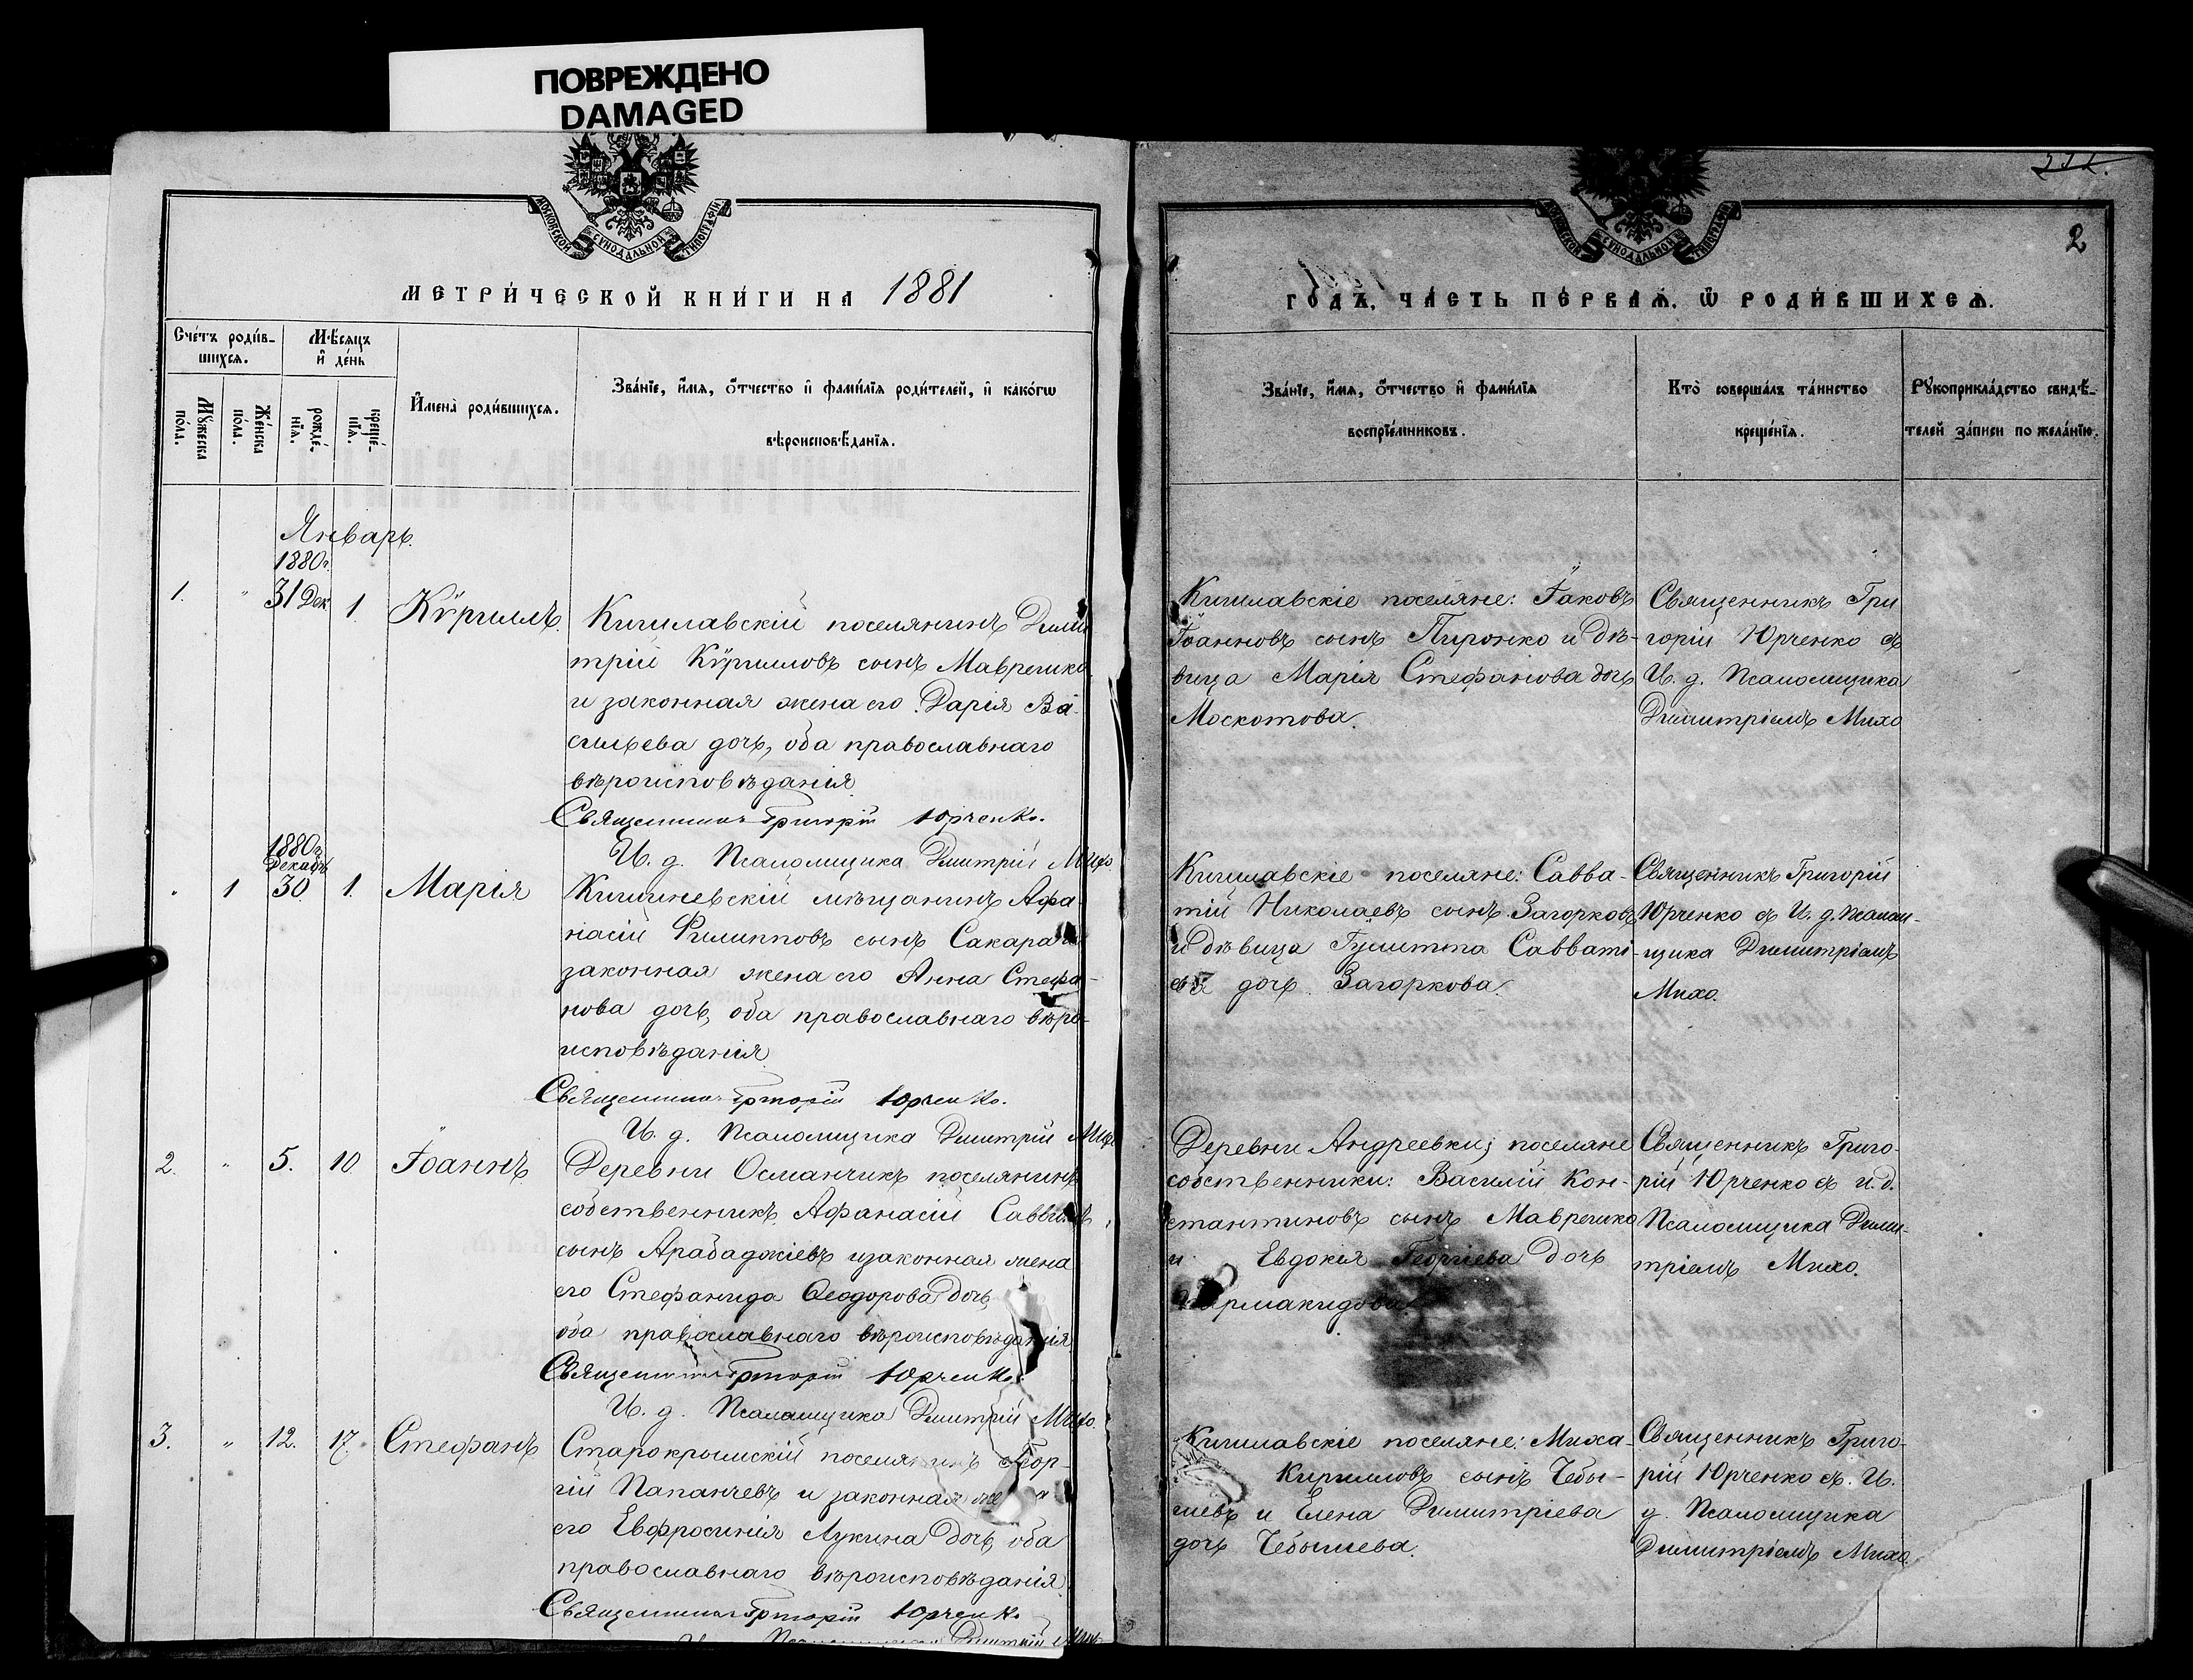 ПОВРЕЖДЕНО
DAMAGED
МОСКОВСКОЙ СУНОДАЛЬНОЙ ТИПОГРАФІИ
МЕТРИ́ЧЕСКОЙ КНИ́ГИ НА 1881
Сче́тъ роди́в-
шихсѧ.
Мѣ́сяцъ
и҆ де́нь
Мꙋжеска
по́ла.
Же́нска
по́ла.
рожде́-
нїѧ.
креще́-
нїѧ.
И҆мена̀ роди́вшихсѧ.
Зва́нїе, и҆́мѧ, ѻ҆́тчество и҆ фами́лїѧ роди́телей, и҆ како́гѡ
вѣроисповѣ́данїѧ.
Январь.
1880г.
1. " 31 Дек. 1. Кѵриллъ.
Кишлавскій поселянинъ Дими
трій Кѵрилловъ сынъ Маврешко
и законная жена его Дарія Ва-
сильева дочь, оба православнаго
вѣроисповѣданія.
Священникъ Григорій Юрченко.
И. д. Псаломщика Димитрій Михо.
1880г.
Декабь
" 1 30 1. Марія
Кишиневскій мѣщанинъ Афа-
насій Филипповъ сынъ Сакара
законная жена его Анна Стефа-
нова дочь, оба православнаго вѣро-
исповѣданія.
Священникъ Григорій Юрченко.
И. д. Псаломщика Димитрій Михо
2. " 5. 10 Іоаннъ
Деревни Османчикъ поселянинъ
собственникъ Афанасій
сынъ Арабаджіевъ и законная жена
его Стефанида Ѳеодорова дочь,
оба православнаго вѣроисповѣданія.
Священникъ Григорій Юрченко.
И. д. Псаломщика Димитрій Михо.
3. " 12. 17. Стефанъ
Старокрымскій поселянинъ Геор-
гій Папанчевъ и законная жена
его Евфросинія Лукина дочь, оба
православнаго вѣроисповѣданія.
Священникъ Григорій Юрченко
И. д. Псаломщика Димитрій Михо
2
МОСКОВСКОЙ СУНОДАЛЬНОЙ ТИПОГРАФІИ
ГОДЪ, ЧА́СТЬ ПЕ́РВАѦ, Ѽ РОДИ́ВШИХСѦ.
Зва́нїе, и҆́мѧ, ѻ҆́тчество и҆ фами́лїѧ
воспрїе́мниковъ.
Кто̀ соверша́лъ та́инство
креще́нїѧ.
Рꙋкоприкла́дство свидѣ́-
телей за́писи по жела́нїю.
Кишлавскіе поселяне: Іаковъ
Іоанновъ сынъ Пиронко и дѣ-
вица Марія Стефанова дочь
Москотова.
Священникъ Гри
горій Юрченко съ
И. д. Псаломщика
Димитріемъ Михо
Кишлавскіе поселяне: Савва-
тій Николаевъ сынъ Загорковъ
и дѣвица Савваті-
ева дочь Загоркова.
Священникъ Григорій
Юрченко съ И. д. Псалом-
щика Димитріемъ
Михо.
Деревни Андреевки, поселяне
собственники: Василій Кон-
стантиновъ сынъ Маврешко
и Евдокія Георгіева дочь
Священникъ Григо-
рій Юрченко съ и. д.
Псаломщика Дими-
тріемъ Михо.
Кишлавскіе поселяне: Миха-
Кирилловъ сынъ Чебы-
шевъ и Елена Димитріева
дочь Чебышева.
Священникъ Григо-
рій Юрченко съ И.
д. Псаломщика
Димитріемъ Михо.